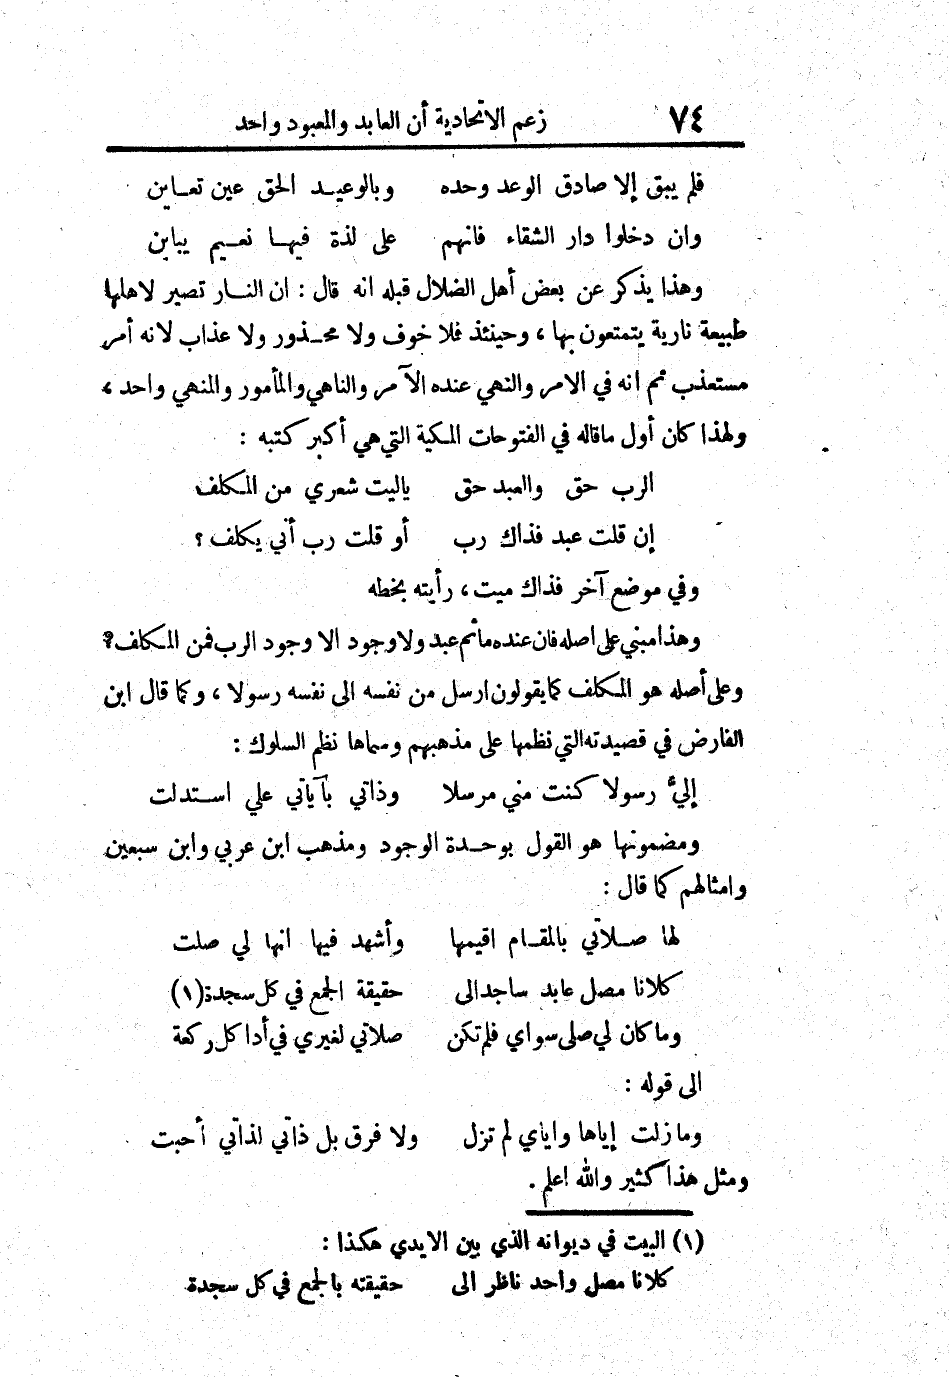 ٧٤ زعم الاتحادية أن العابد والمعبود واحد
فلم يبق إلا صادق الوعد وحده وبالوعيد الحق عين تعاين
وان دخلوا دار الشقاء فانهم على لذة فيها نعيم يباين
وهذا يذكر عن بعض أهل الضلال قبله انه قال : ان النار تصير لاهلها
طبيعة نارية يتمتعون بها ، وحينئذ فلا خوف ولا محذور ولا عذاب لانه أمر
مستعذب ثم انه في الامر والنهي عنده الآمر والناهي والمأمور والمنهي واحد ،
ولهذا كان أول ماقاله في الفتوحات المكية التي هي أكبر كتبه :
الرب حق والعبد حق ياليت شعري من المكلف
إن قلت عبد فذاك رب أو قلت رب أنى يكلف ؟
وفي موضع آخر فذاك ميت ، رأيته بخطه
وهذا مبني على اصله فان عنده ماثم عبد ولا وجود الا وجود الرب فمن المكلف ؟
وعلى أصله هو المكلف كما يقولون ارسل من نفسه الى نفسه رسولا ، وكما قال ابن
الفارض في قصيدته التي نظمها على مذهبهم وسماها نظم السلوك :
إليَّ رسولا كنت مني مرسلا وذاتي بآياتي علي استدلت
ومضمونها هو القول بوحدة الوجود ومذهب ابن عربي وابن سبعين
وامثالهم كما قال :
لها صلاتي بالمقام اقيمها وأشهد فيها انها لي صلت
كلانا مصل عابد ساجد الى حقيقة الجمع في كل سجدة (١)
وما كان لي صلى سواي فلم تكن صلاتي لغيري في أدا كل ركعة
الى قوله :
وما زلت إياها واياي لم تزل ولا فرق بل ذاتي لذاتي أحبت
ومثل هذا كثير والله اعلم .
(١) البيت في ديوانه الذي بين الايدي هكذا :
كلانا مصل واحد ناظر الى حقيقته بالجمع في كل سجدة